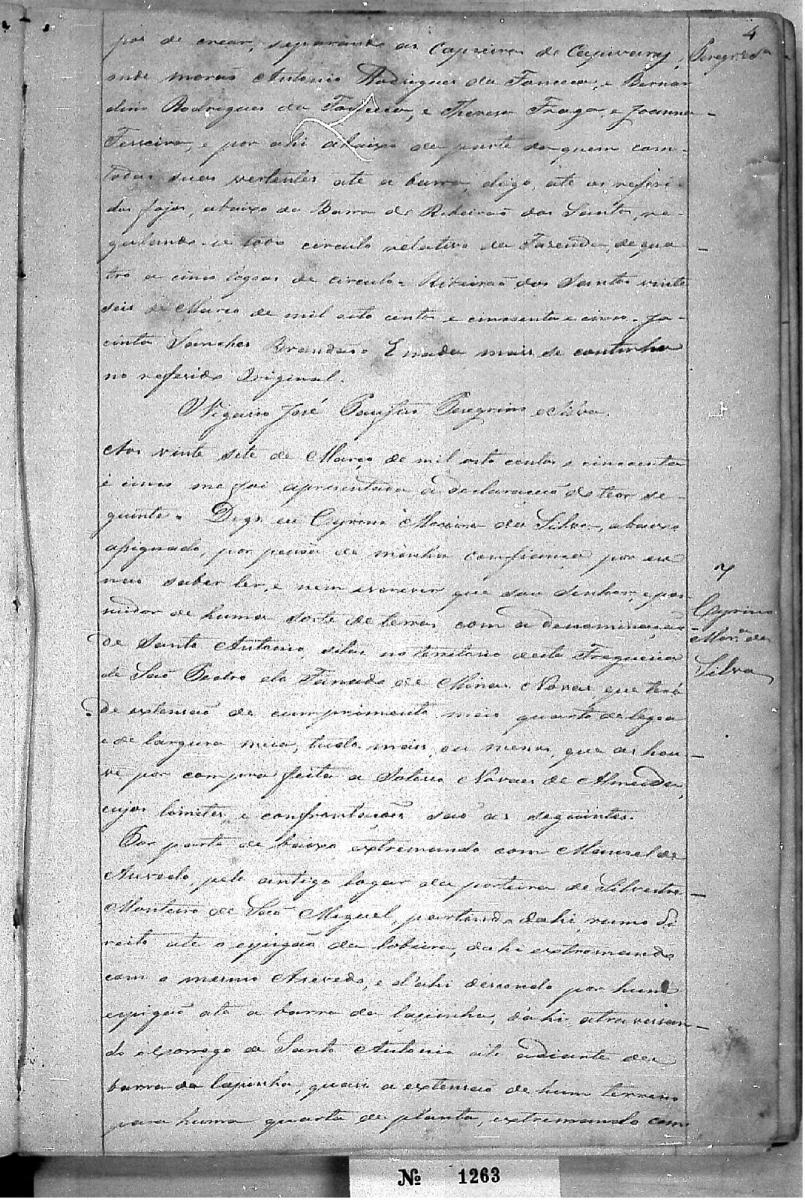 4
Peregrino
pos de crear, separando as Capoeiras de Capivaras,
onde morão Antonio Rodrigues da Fonseca, e Bernar
dino Rodrigues da Fonseca, e Thereza Fraga, e Joanna
Ferreira, e por ahi abaixo da parte da quem com
todas suas vertentes até a barra, digo, até as referi
das fojas, abaixo da Barra do Ribeirão dos Santos, re-
gulando-se todo circulo relativo da Fazenda, de qua
tro a cinco legoas de circulo. Ribeirão dos Santos vinte
seis de Março de mil oito centos e cincoenta e cinco. Ja-
cinta Sanches Brandão. E nada mais se continha
no referido Original.
Vigario José Peregrino e Silva.
Aos vinte sete de Março de mil oito centos e cincoenta
e cinco me foi apresentada a declaração do teor se-
guinte. Digo eu Cyrino Moreira da Silva, abaixo
assignado, por pessoa de minha confiança por eu
não saber ler, e nem escrever que sou senhor, e pos
suidor de huma sorte de terras com a denominação
7
Cyrino
Mor.ª da
Silva
de Santo Antonio, sitas no territorio desta Freguezia
de São Pedro do Fanado de Minas Novas, que terá
de extensão de cumprimento mais quarto de legoa
e de largura meia, tudo mais, ou menos, que as hou-
ve por compra feita a Novaes de Almeida,
cujos limites, e confrontações são as seguintes.
Por parte de baixo extremando com Manoel de
Azevedo, pelo antigo lugar da porteira de Silvestre
Monteiro de São Miguel, partindo dahi, rumo di
reito até o espigão da lobeira, dahi extremando
com o mesmo Azevedo, e d'ahi descendo por hum
espigão até a barra da lapinha, d'ahi atravessan-
do o corrego de Santo Antonio até adiante da
barra da lapinha, quasi a extensão de hum terreno
para huma quarta de planta, extremando com
Nº 1263